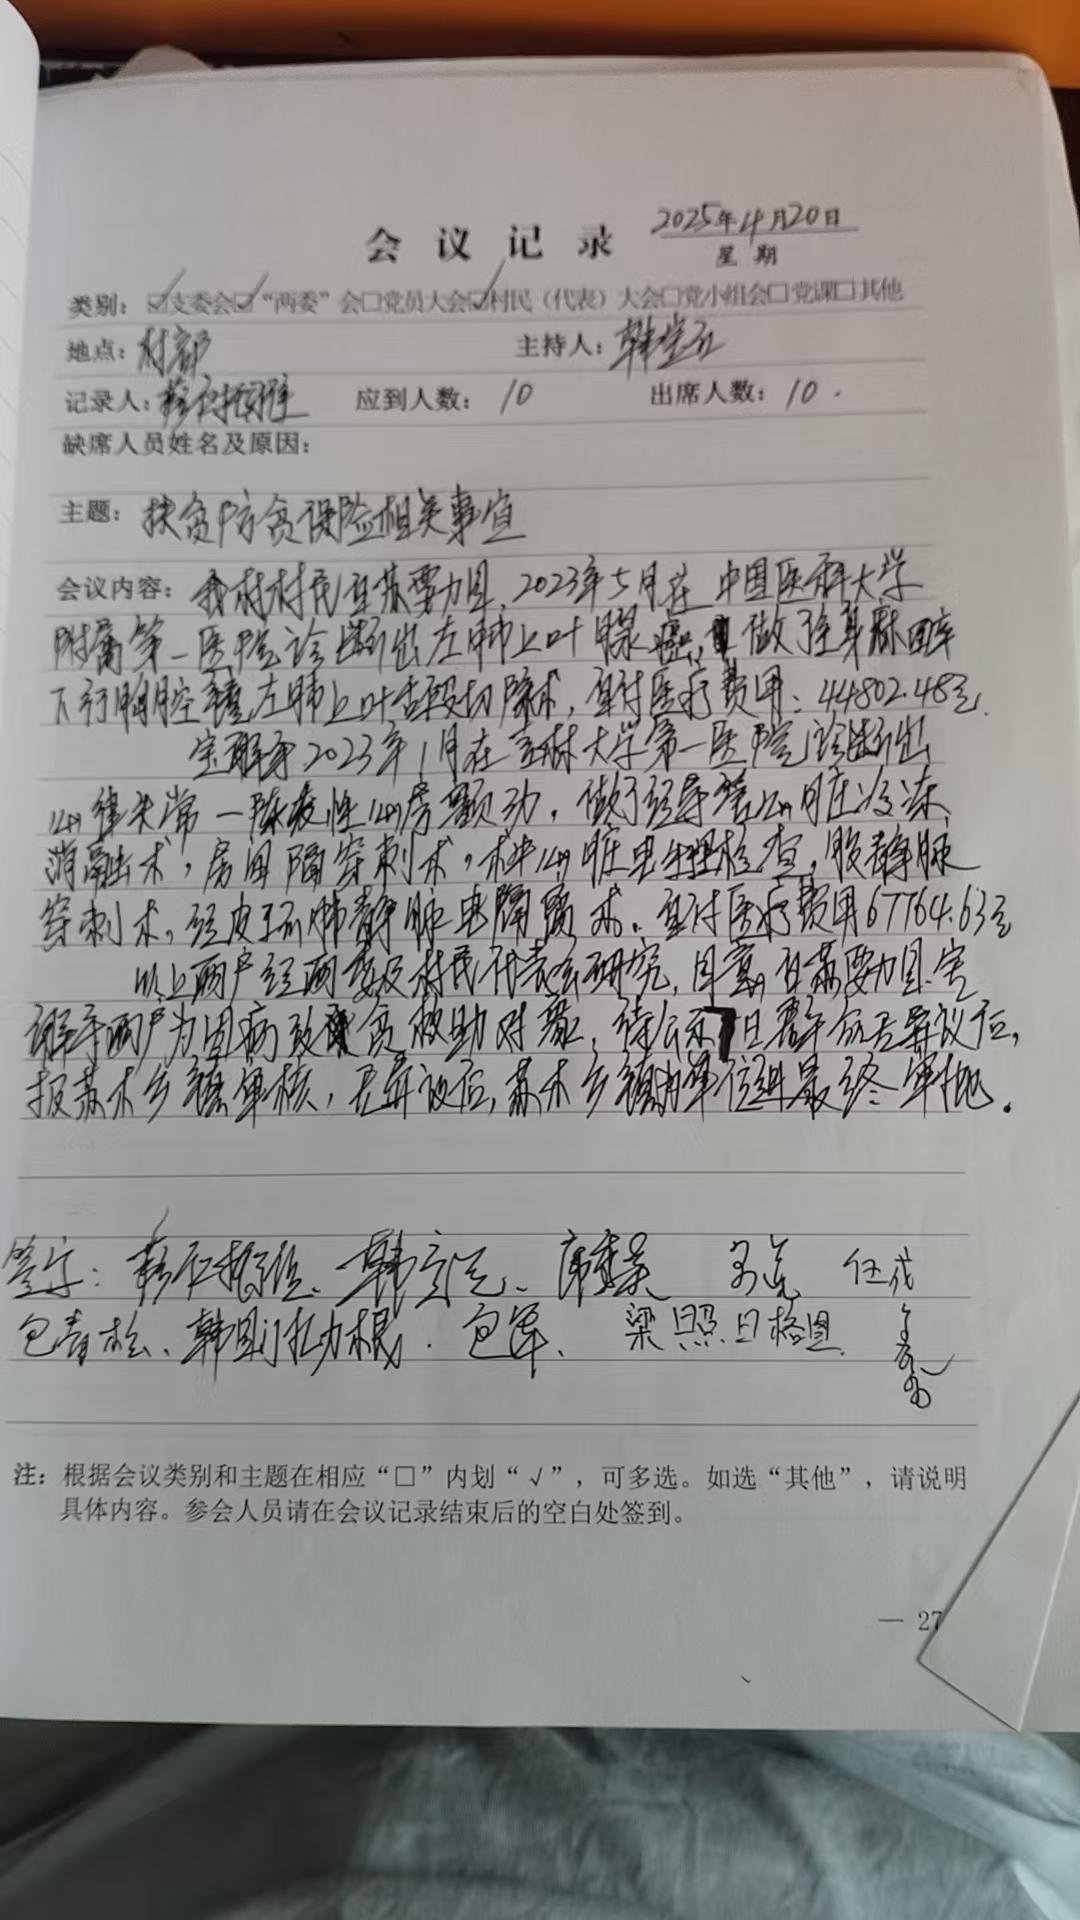 会议记录
2025年4月20日
星期
类别：☑支委会☑“两委”会□党员大会☑村民（代表）大会□党小组会□党课□其他
地点：村部 主持人：韩
记录人： 应到人数：10 出席人数：10.
缺席人员姓名及原因：
主题：扶贫防贫保险相关事宜
会议内容：我村村民 2023年5月在中国医科大学
附属第一医院诊断出左肺上叶腺癌，做了全身麻醉
下行胸腔镜左肺上叶舌段切除术，自付医疗费用：44802.48元.
2023年1月在吉林大学第一医院诊断出
心律失常—阵发性心房颤动，做了经导管心脏冷冻
消融术，房间隔穿刺术，术中心脏电生理检查，股静脉
穿刺术，经皮环肺静脉电隔离术。自付医疗费用67764.63元
以上两户经两委及村民代表会研究，
两户为因病致贫救助对象，待公示7日群众无异议后，
报苏木乡镇审核，无异议后，苏木乡镇 单位进 最终审批.
签字：
包青松、韩图门扎力根. 包军、 梁照日格图
注：根据会议类别和主题在相应“□”内划“√”，可多选。如选“其他”，请说明
具体内容。参会人员请在会议记录结束后的空白处签到。
— 27